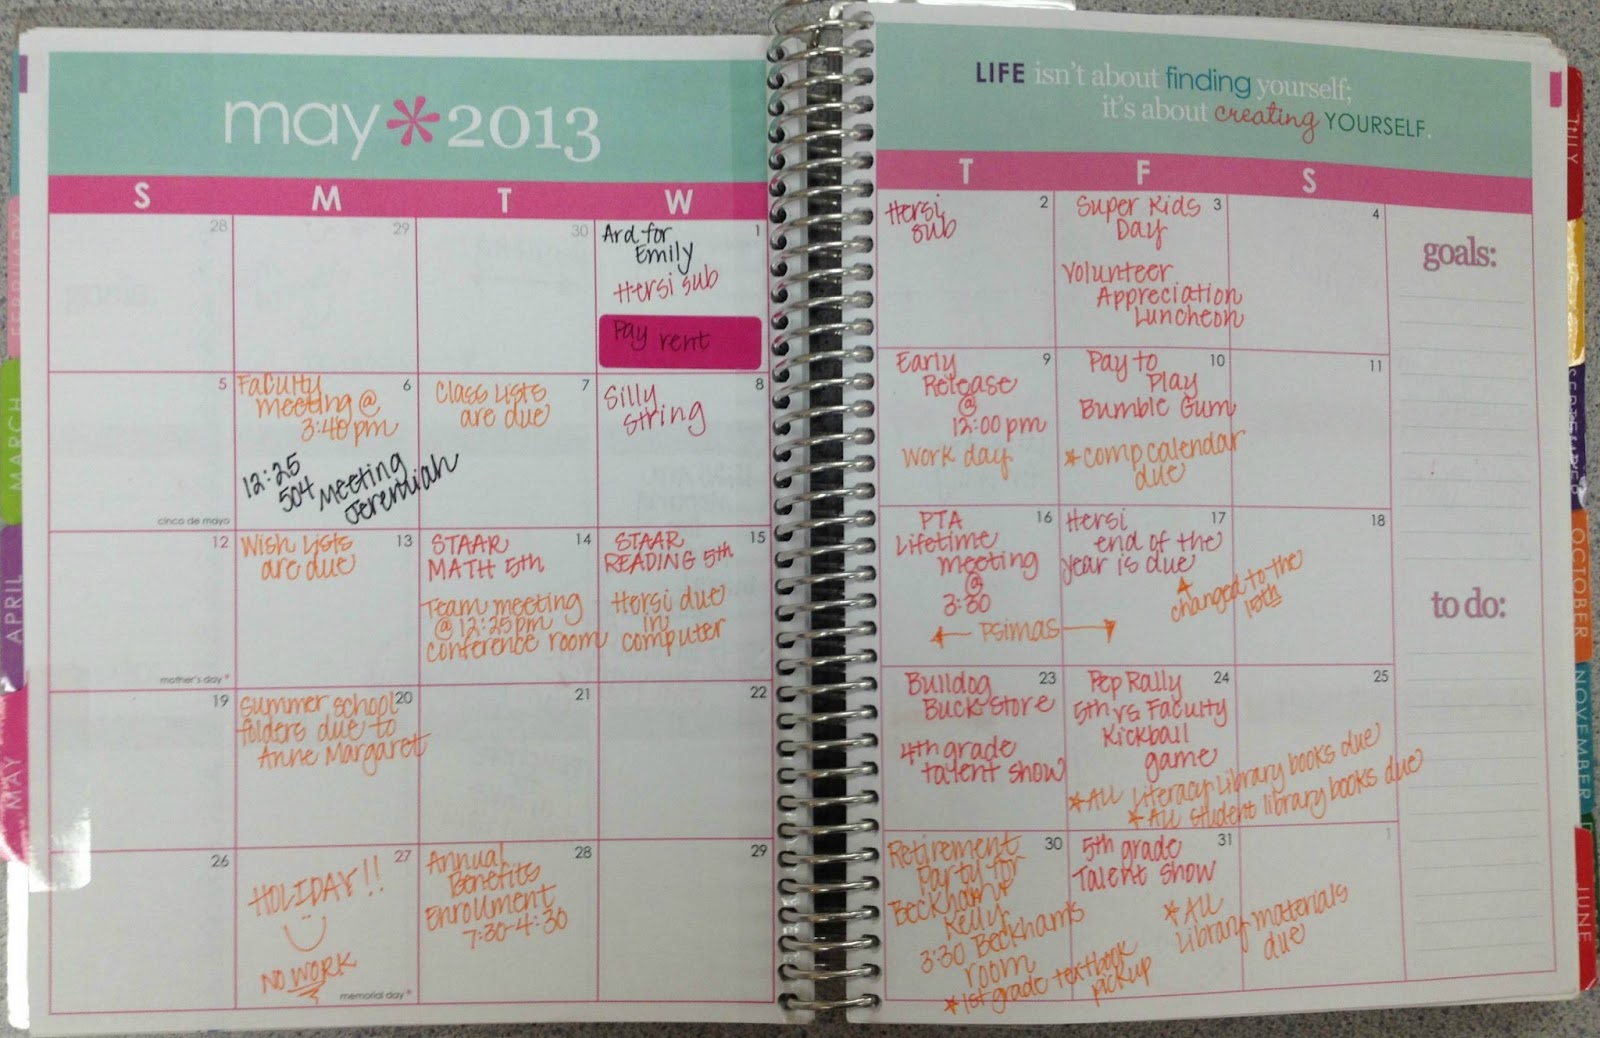 may * 2013
LIFE isn't about finding yourself;
it's about creating YOURSELF.
S M T W
T F S
28
29
30
1
Ard for
Emily
Hersi sub
Pay rent
2
Hersi
sub
3
Super Kids
Day
Volunteer
Appreciation
Luncheon
4
5
cinco de mayo
6
Faculty
meeting @
3:40 pm
12:25
504 Meeting
Jeremiah
7
Class Lists
are due
8
Silly
string
9
Early
Release
@
12:00 pm
Work day
10
Pay to
Play
Bumble Gum
* comp calendar
due
11
12
mother's day *
13
Wish Lists
are due
14
STAAR
MATH 5th
Team meeting
@ 12:25pm
conference room
15
STAAR
READING 5th
Hersi due
in
computer
16
PTA
Lifetime
meeting
@
3:30
← Psimas →
17
Hersi
end of the
year is due
changed to the
15th
18
19
20
Summer school
folders due to
Anne Margaret
21
22
23
Bulldog
Buck Store
4th grade
talent show
24
Pep Rally
5th vs Faculty
Kickball
game
* All Literacy Library books due
* All student library books due
25
26
27
HOLIDAY!!
NO WORK
memorial day *
28
Annual
Benefits
Enrollment
7:30-4:30
29
30
Retirement
Party for
Beckham &
Kelly
3:30 Beckham's
room
* 1st grade textbook
pickup
31
5th grade
Talent Show
* All
Library materials
due
1
goals:
to do:
FEBRUARY
MARCH
APRIL
MAY
JULY
SEPTEMBER
OCTOBER
NOVEMBER
JUNE